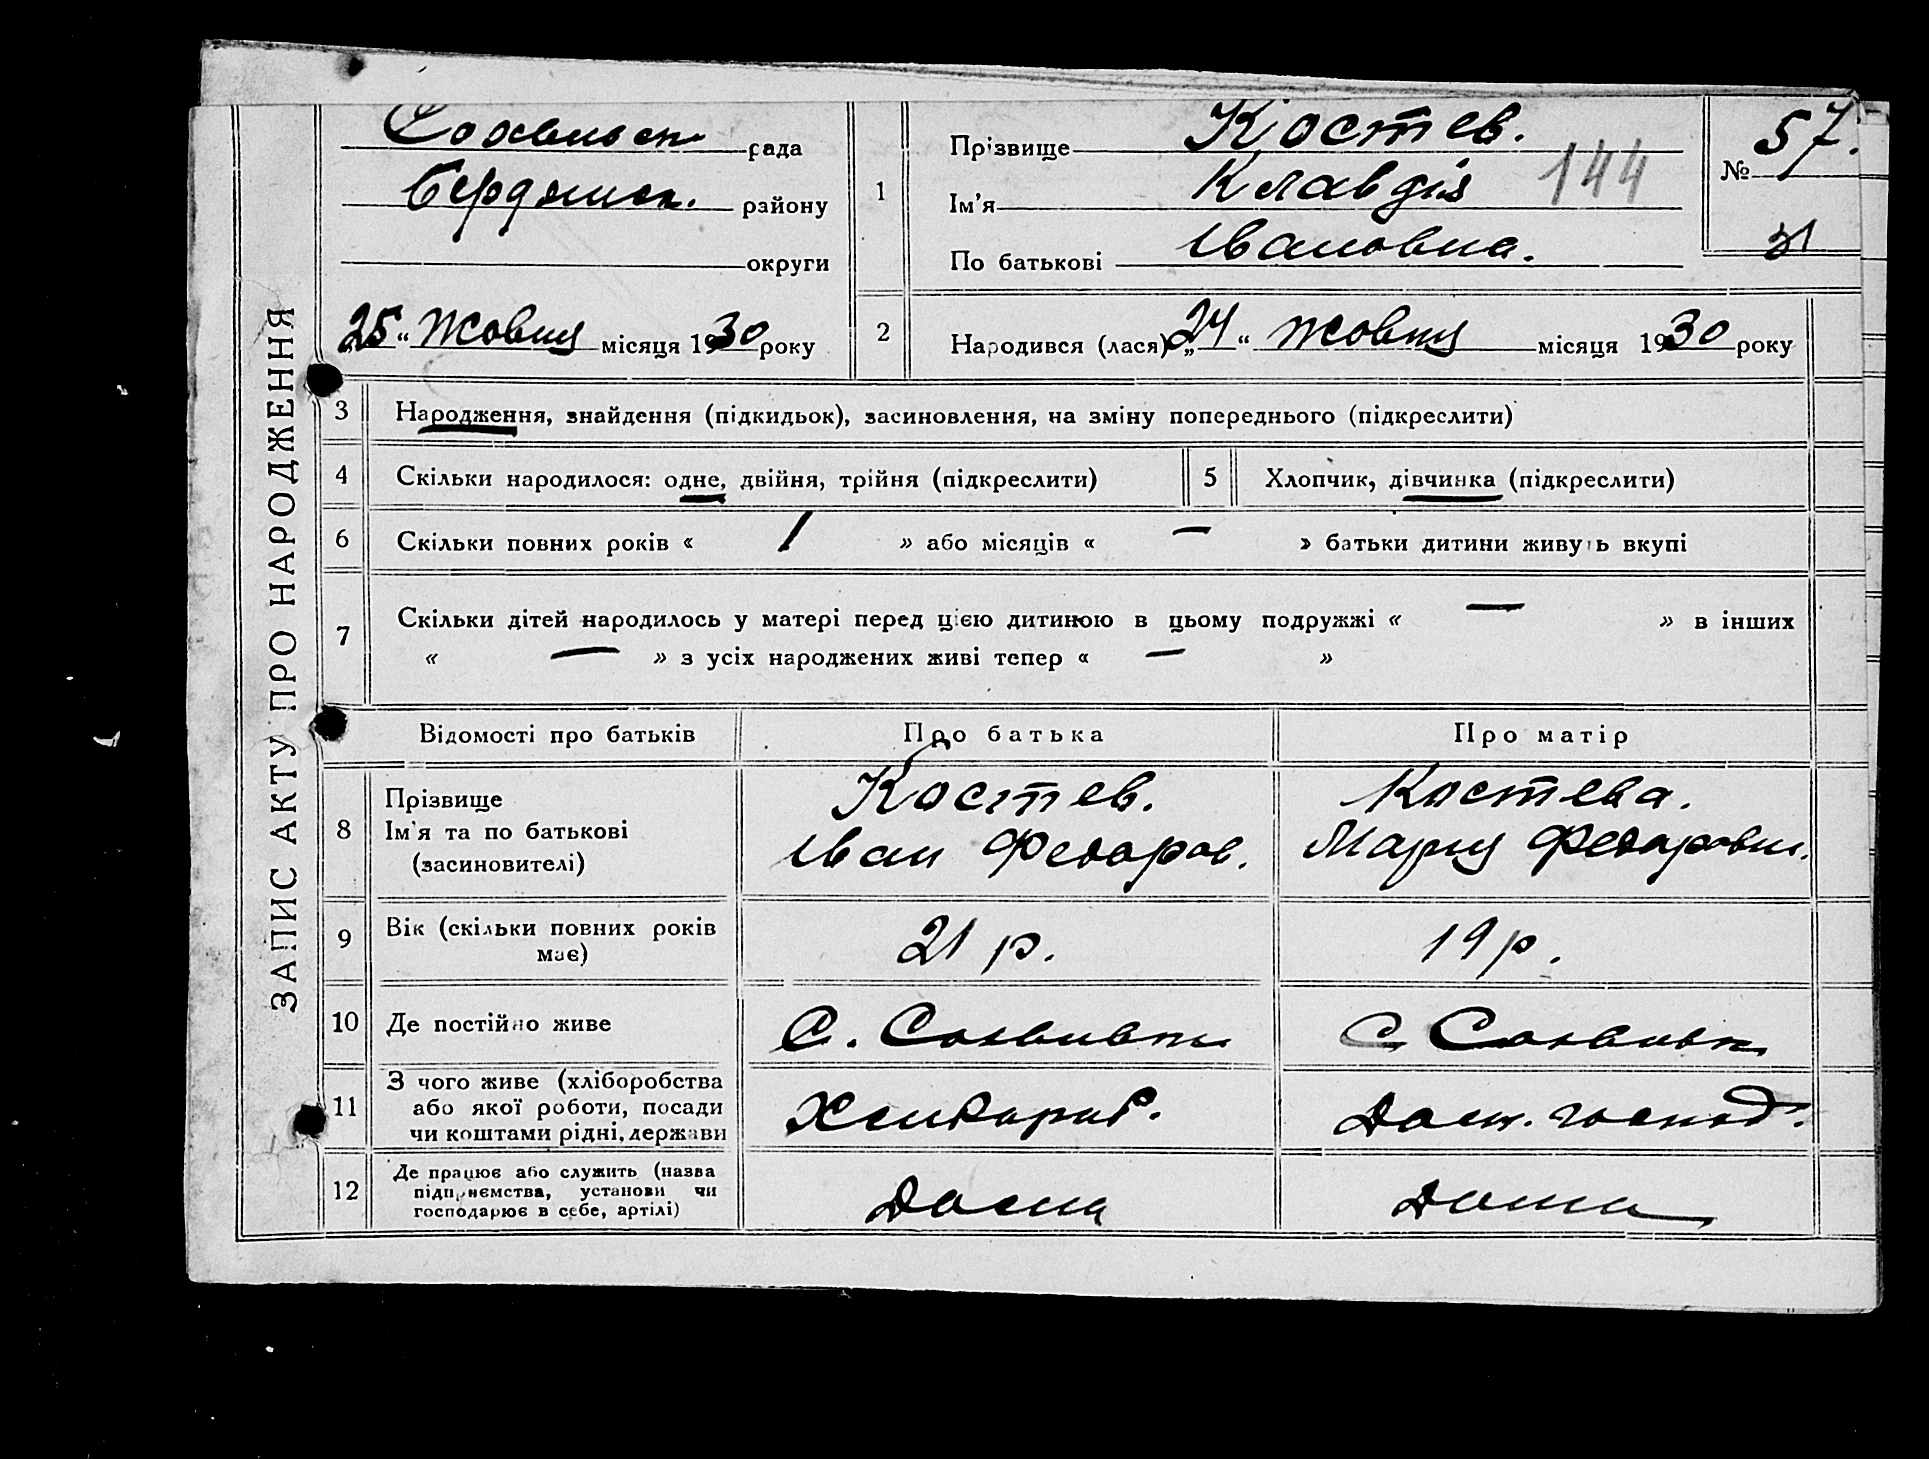 ЗАПИС АКТУ ПРО НАРОДЖЕННЯ
рада
Бердянск. району
округи
„25“ Жовтня місяця 1930 року
1
Прізвище Костев.
Ім'я Клавдія 144
По батькові Івановна.
№ 57.
31
2 Народився (лася) „24“ Жовтня місяця 1930 року
3 Народження, знайдення (підкидьок), засиновлення, на зміну попереднього (підкреслити)
4 Скільки народилося: одне, двійня, трійня (підкреслити) 5 Хлопчик, дівчинка (підкреслити)
6 Скільки повних років « 1 » або місяців « — » батьки дитини живуть вкупі
7 Скільки дітей народилось у матері перед цією дитиною в цьому подружжі « — » в інших
« — » з усіх народжених живі тепер « — »
Відомості про батьків Про батька Про матір
8 Прізвище Костев. Костева.
Ім'я та по батькові Іван Федоров. Мария Федоровн.
(засиновителі)
9 Вік (скільки повних років має) 21 р. 19 р.
10 Де постійно живе С. С.
11 З чого живе (хліборобства
або якої роботи, посади Хлібороб. Дом. господ.
чи коштами рідні, держави
12 Де працює або служить (назва
підприємства, установи чи Дома Дома
господарює в себе, артілі)